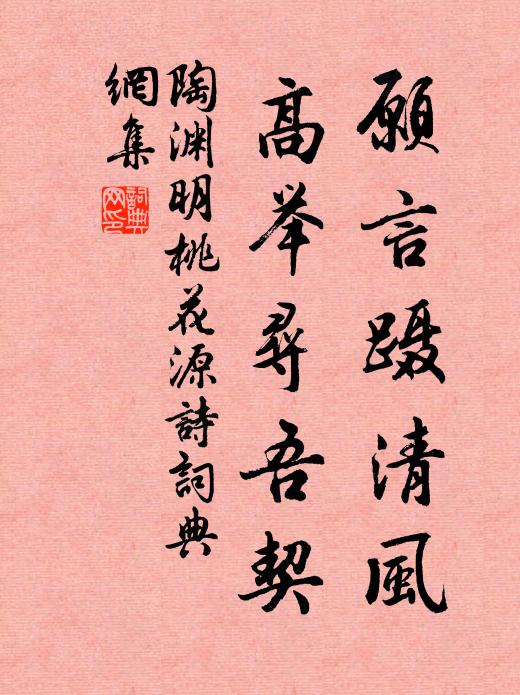 願言蹑清風
高举尋吾契
陶渊明桃花源詩詞典
網集
詞典網印